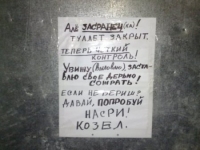 Але ЗАСРАНЕЦ(ка)!
ТУАЛЕТ ЗАКРЫТ.
ТЕПЕРЬ ЖЁТКИЙ
КОНТРОЛЬ!
УВИЖУ ЗАСТА-
ВЛЮ СВОЁ ДЕРЬМО
СОЖРАТЬ!
ЕСЛИ НЕ ВЕРИШЬ?
ДАВАЙ, ПОПРОБУЙ
НАСРИ!
КОЗЁЛ.